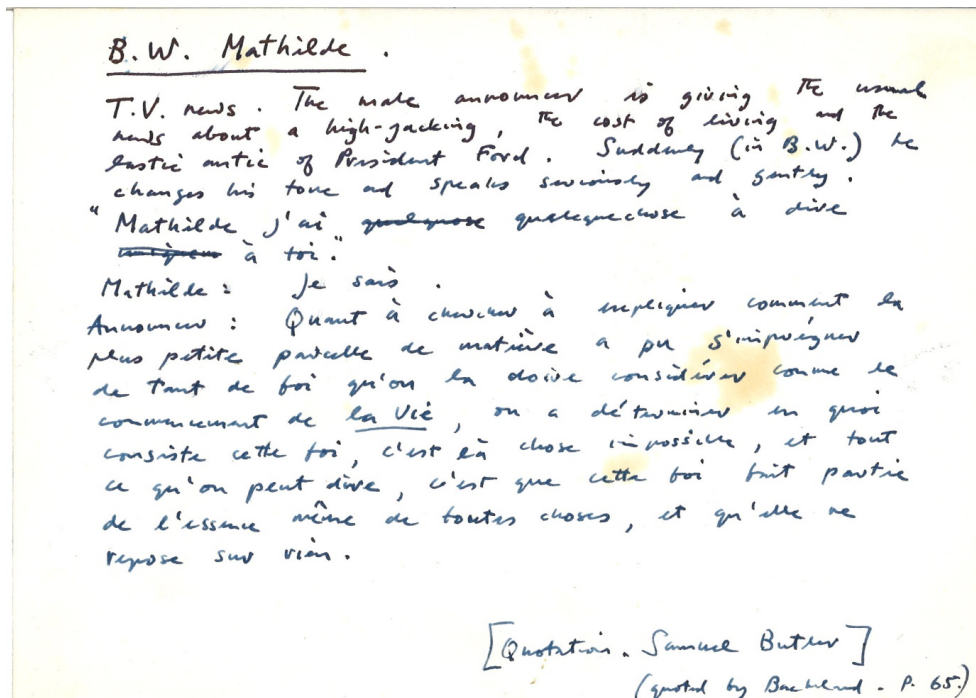 B.W. Mathilde.
T.V. news. The male announcer is giving the usual
news about a high-jacking, the cost of living and the
lastic antic of President Ford. Suddenly (in B.W.) he
changes his tone and speaks seriously and gently.
"Mathilde j'ai quelquose quelquechose à dire
à toi."
Mathilde: Je sais.
Announcer: Quant à chercher à expliquer comment la
plus petite parcelle de matière a pu s'imprégner
de tant de foi qu'on la doive considérer comme le
commencement de la Vie, ou a déterminer en quoi
consiste cette foi, c'est là chose impossible, et tout
ce qu'on peut dire, c'est que cette foi fait partie
de l'essence même de toutes choses, et qu'elle ne
repose sur rien.
[Quotation. Samuel Butler]
(quoted by Bachelard - P. 65.)